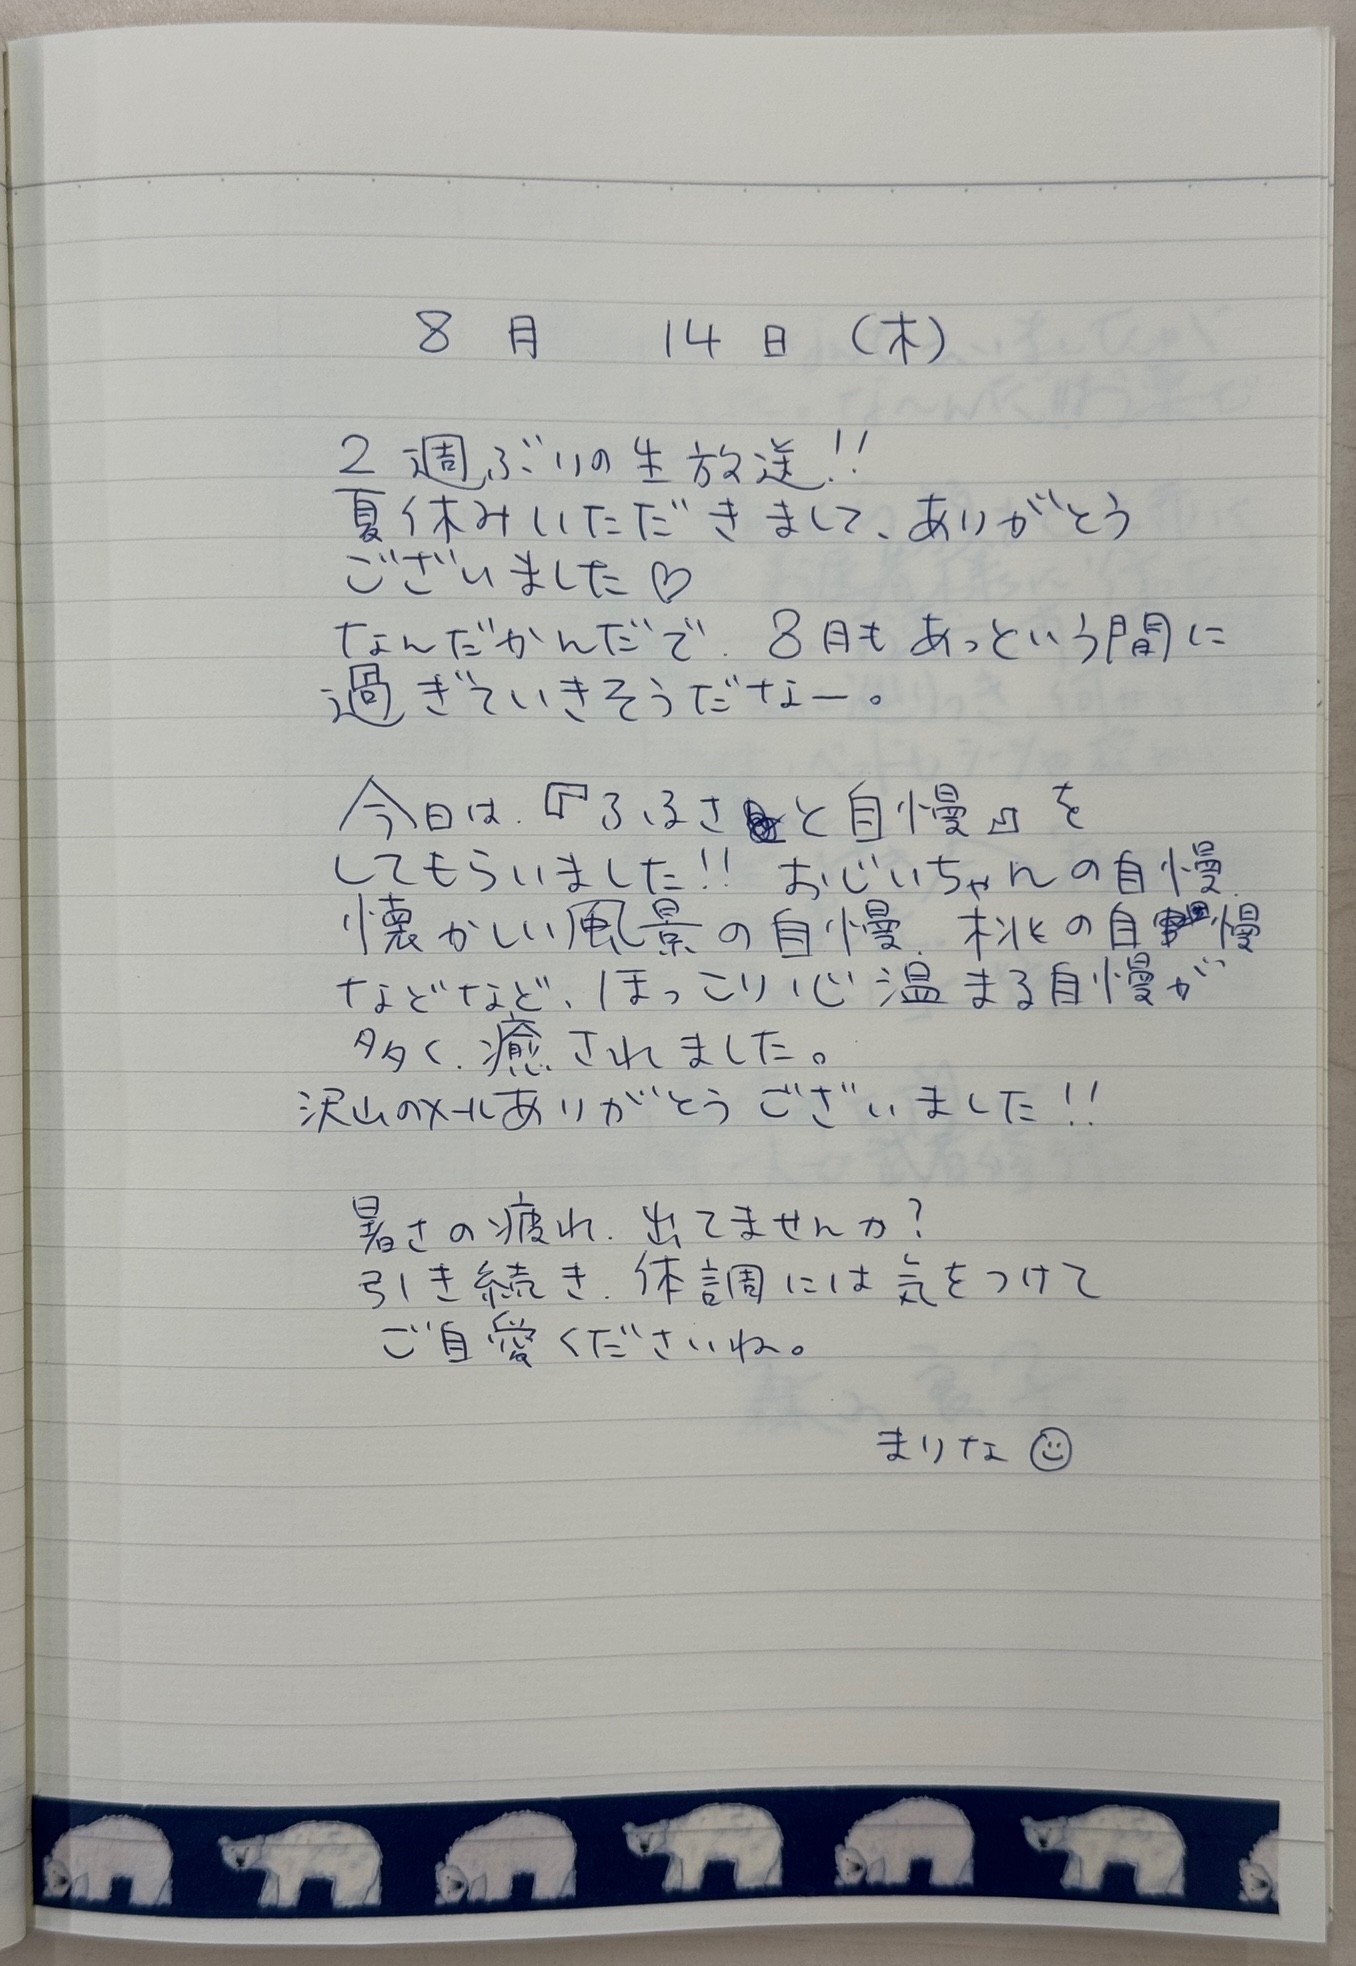 8月 14日(木)
2週ぶりの生放送!!
夏休みいただきまして、ありがとう
ございました♡
なんだかんだで、8月もあっという間に
過ぎていきそうだなー。
今日は、『ふるさと自慢』を
してもらいました!! おじいちゃんの自慢、
懐かしい風景の自慢、桃の自慢
などなど、ほっこり心温まる自慢が
多く、癒されました。
沢山のメールありがとうございました!!
暑さの疲れ、出てませんか?
引き続き、体調には気をつけて
ご自愛くださいね。
まりな☺